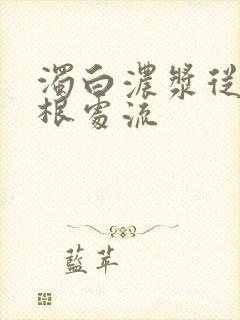 濁白濃漿從
根處流
藍苹